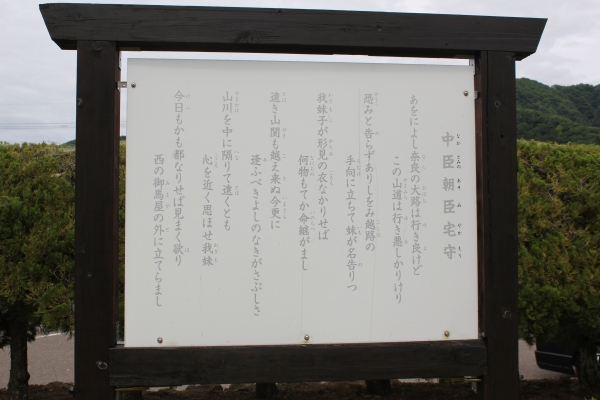 中臣朝臣宅守
あをによし奈良の大路は行き良けど
この山道は行き悪しかりけり
恐みと告らずありしをみ越路の
手向に立ちて妹が名告りつ
我妹子が形見の衣なかりせば
何物もてか命継がまし
遠き山関も越え来ぬ今更に
逢ふべきよしのなきがさぶしさ
山川を中に隔りて遠くとも
心を近く思ほせ我妹
今日もかも都なりせば見まく欲り
西の御馬屋の外に立てらまし